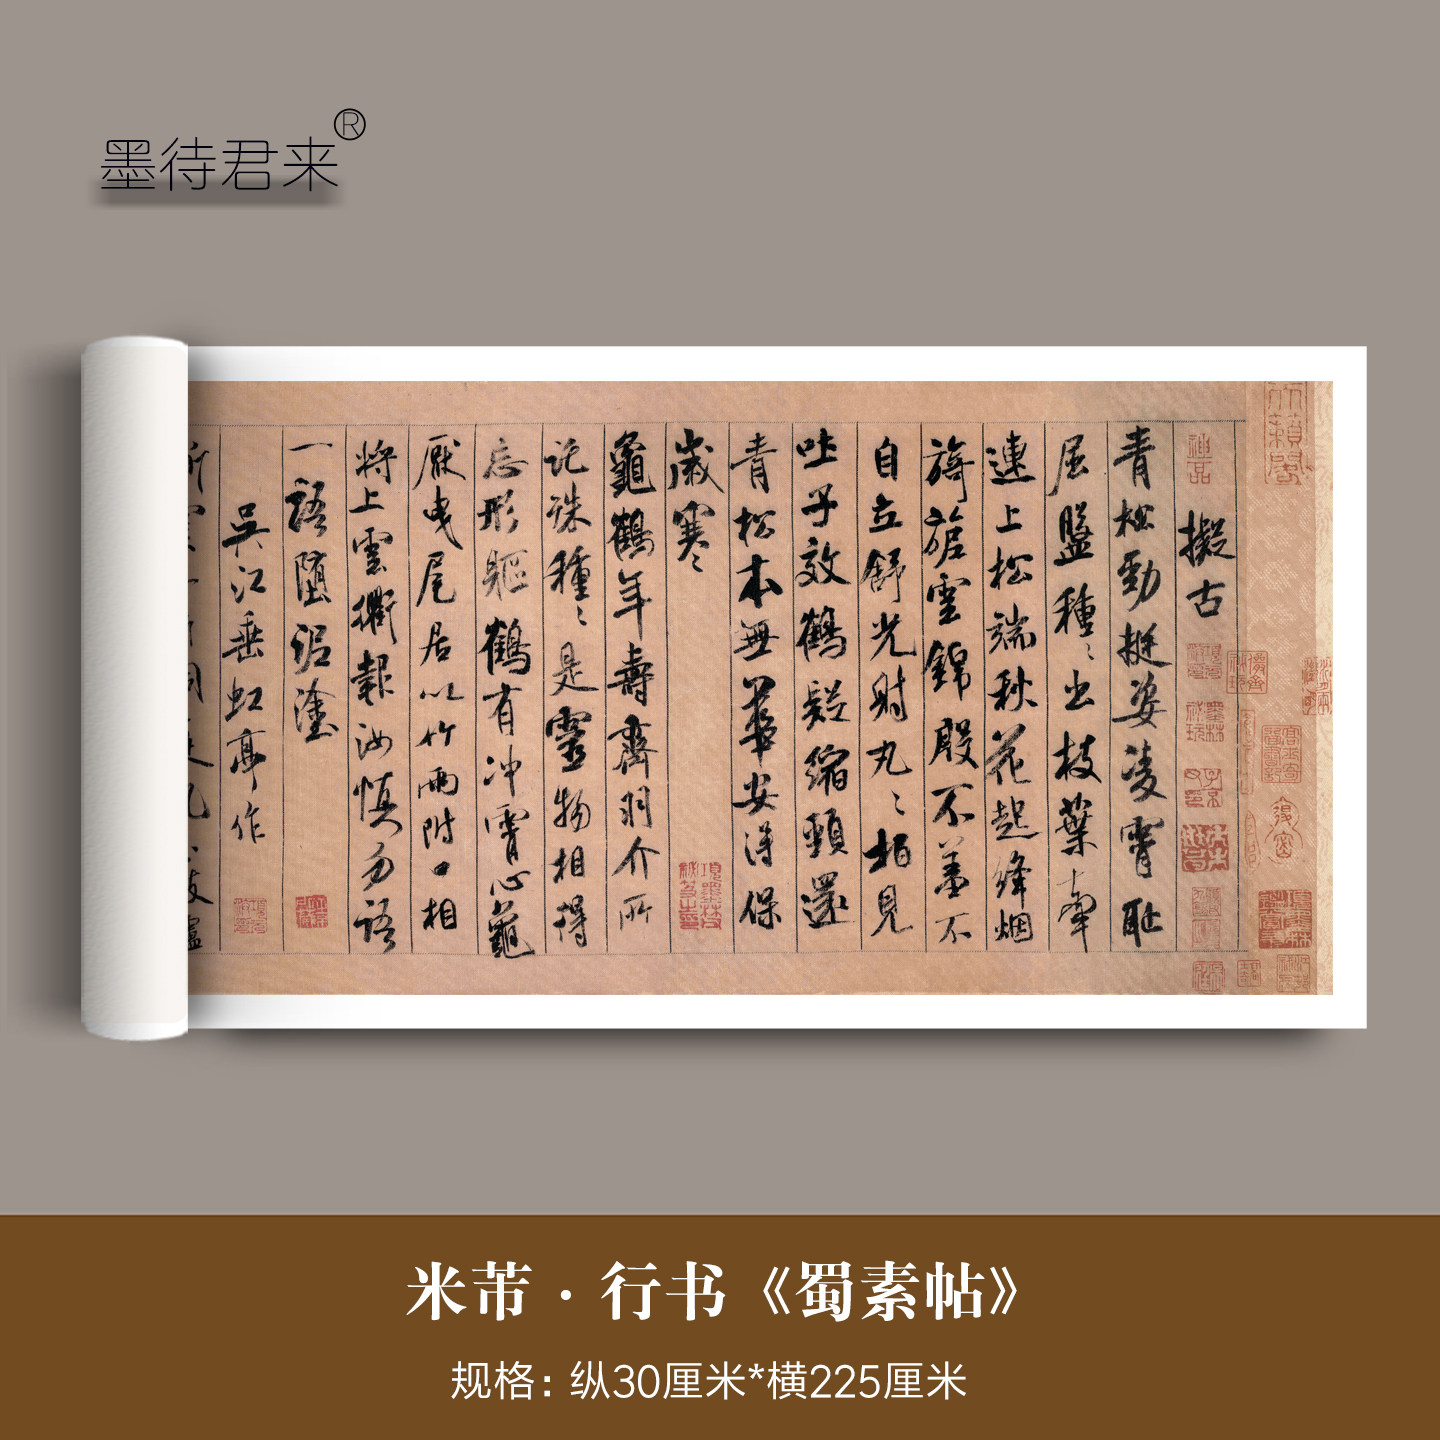 墨待君来®
擬古
青松勁挺姿凌霄恥
屈盤種々出枝葉牽
連上松端秋花起絳烟
旖旎雲錦殷不羞不
自立舒光射丸々柏見
吐子效鶴疑縮頸還
青松本無華安得保
歲寒々
龜鶴年壽齊羽介所
託殊種々是靈物相得
忘形軀鶴有冲霄心龜
厭曳尾居以竹兩附口相
將上雲衢報汝慎勿語
一語墮泥塗
吳江垂虹亭作
米芾·行书《蜀素帖》
规格：纵30厘米*横225厘米